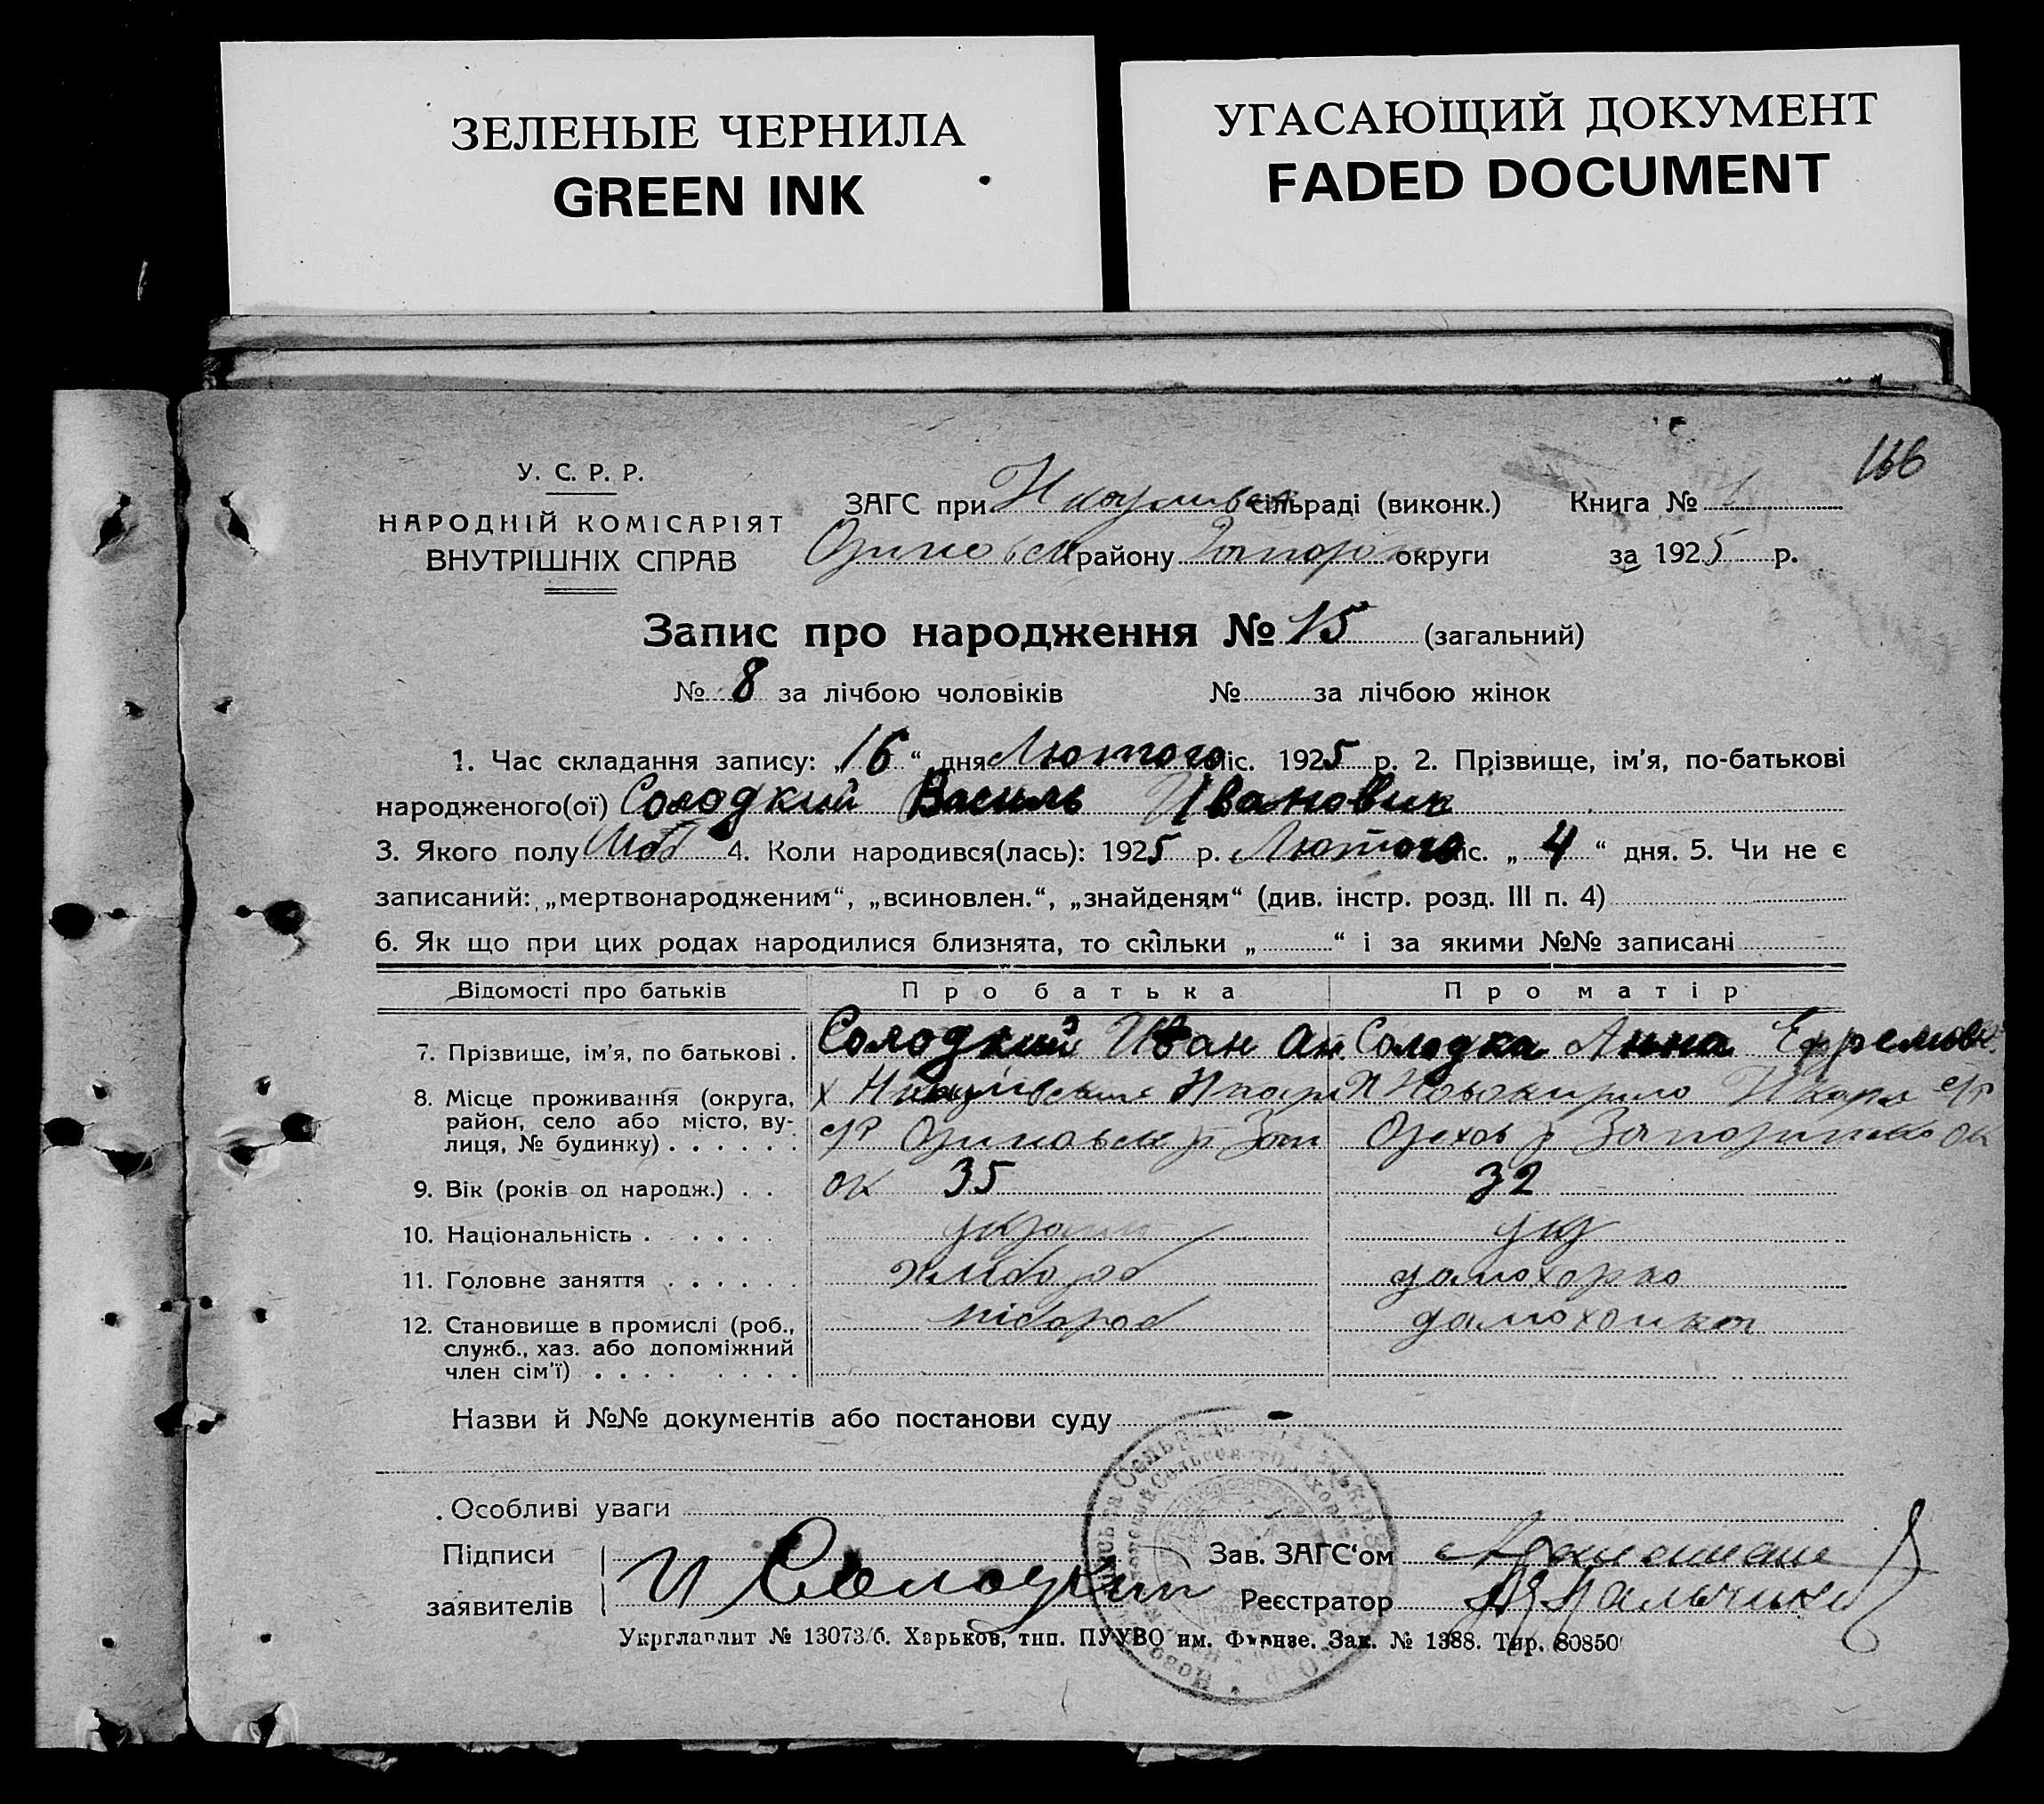 ЗЕЛЕНЫЕ ЧЕРНИЛА
GREEN INK
УГАСАЮЩИЙ ДОКУМЕНТ
FADED DOCUMENT
166
У. С. Р. Р.
НАРОДНІЙ КОМІСАРІЯТ
ВНУТРІШНІХ СПРАВ
ЗАГС при сільраді (виконк.) Книга №
району округи за 1925 р.
Запис про народження № 15 (загальний)
№ 8 за лічбою чоловіків № за лічбою жінок
1. Час складання запису: „16“ дня Лютого міс. 1925 р. 2. Прізвище, ім'я, по-батькові
народженого(ої) Солодкий Василь Иванович
3. Якого полу 4. Коли народився(лась): 1925 р. Лютого міс. „4“ дня. 5. Чи не є
записаний: „мертвонародженим“, „всиновлен.“, „знайденям“ (див. інстр. розд. III п. 4)
6. Як що при цих родах народилися близнята, то скільки „ “ і за якими №№ записані
Відомості про батьків Про батька Про матір
7. Прізвище, ім'я, по батькові . Солодкий Иван Ан Солодка Анна Ефремовна
8. Місце проживання (округа,
район, село або місто, ву-
лиця, № будинку) . . . . . . с/р Зап Орехов р ок
9. Вік (років од народж.) . . ок 35 32
10. Національність . . . . . . укр
11. Головне заняття . . . . . . хлібороб
12. Становище в промислі (роб.,
служб., хаз. або допоміжний
член сім'ї) . . . . . . . . хлібороб
Назви й №№ документів або постанови суду -
Особливі уваги
Підписи Зав. ЗАГС'ом
заявителів И Солодкий Реєстратор
Укрглавлит № 13073/б. Харьков, тип. ПУУВО им. Фрунзе. Зак. № 1388. Тир. 80850